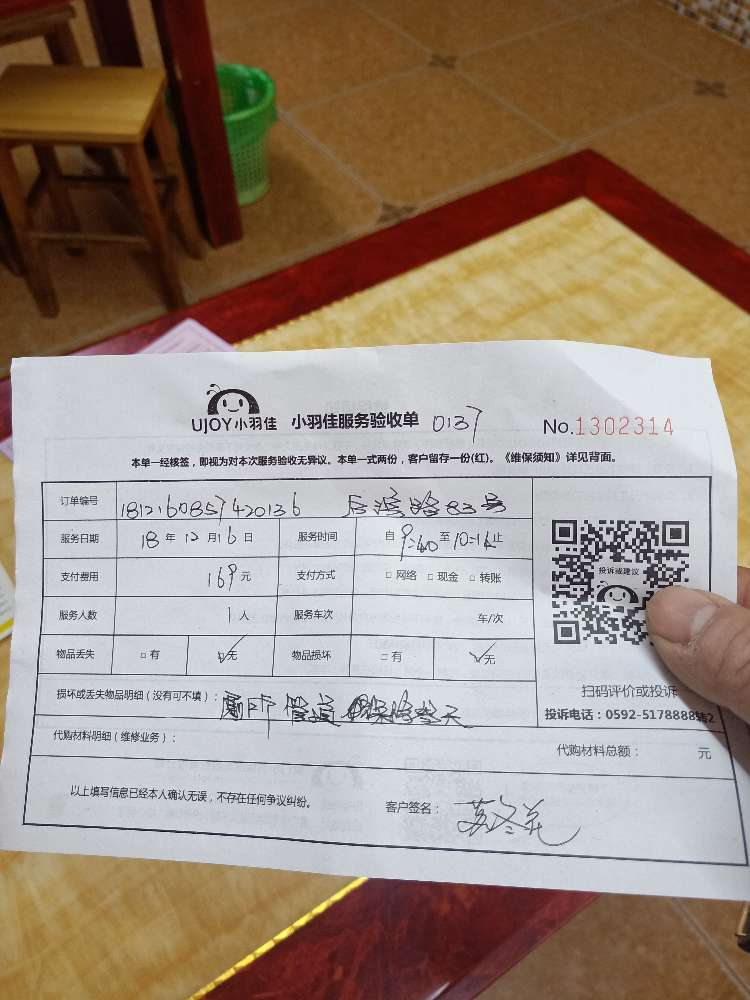 UJOY小羽佳 小羽佳服务验收单 0137 No.1302314
本单一经核签，即视为对本次服务验收无异议。本单一式两份，客户留存一份(红)。《维保须知》详见背面。
订单编号 1812160857420136 后滨路83号
服务日期 18年12月16日 服务时间 自9:40至10:14止
支付费用 169元 支付方式 □网络 □现金 □转账
投诉或建议
服务人数 1人 服务车次 车/次
物品丢失 □有 □无 物品损坏 □有 □无
扫码评价或投诉
投诉电话：0592-5178888转2
损坏或丢失物品明细（没有可不填）： 厕所管道 保修 天
代购材料明细（维修业务）： 代购材料总额： 元
以上填写信息已经本人确认无误，不存在任何争议纠纷。 客户签名：